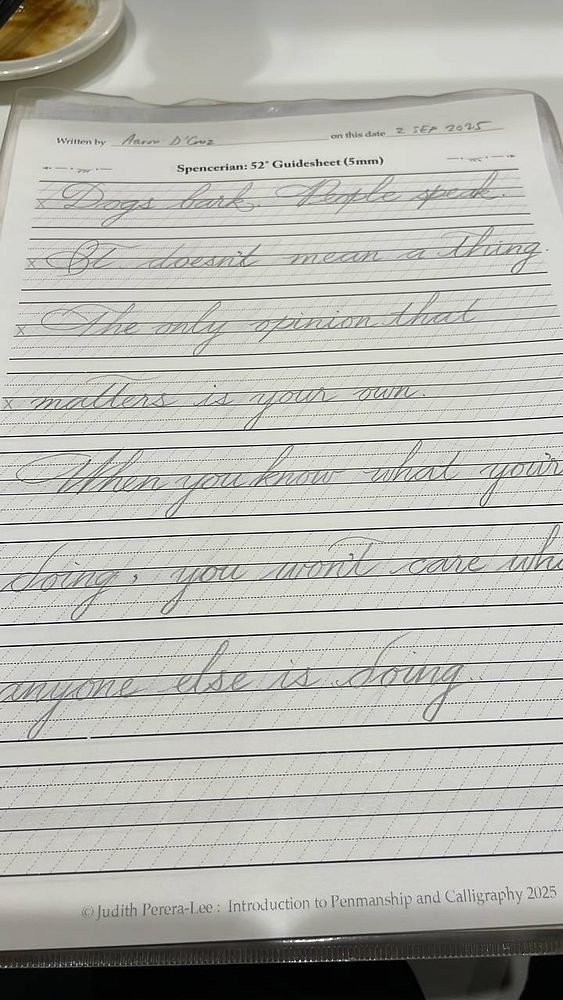 Written by Aaron D'Cruz on this date 2 SEP 2025
Spencerian: 52° Guidesheet (5mm)
x Dogs bark. People speak.
x It doesn't mean a thing.
x The only opinion that
x matters is your own.
When you know what your
doing, you won't care
anyone else is doing.
© Judith Perera-Lee : Introduction to Penmanship and Calligraphy 2025